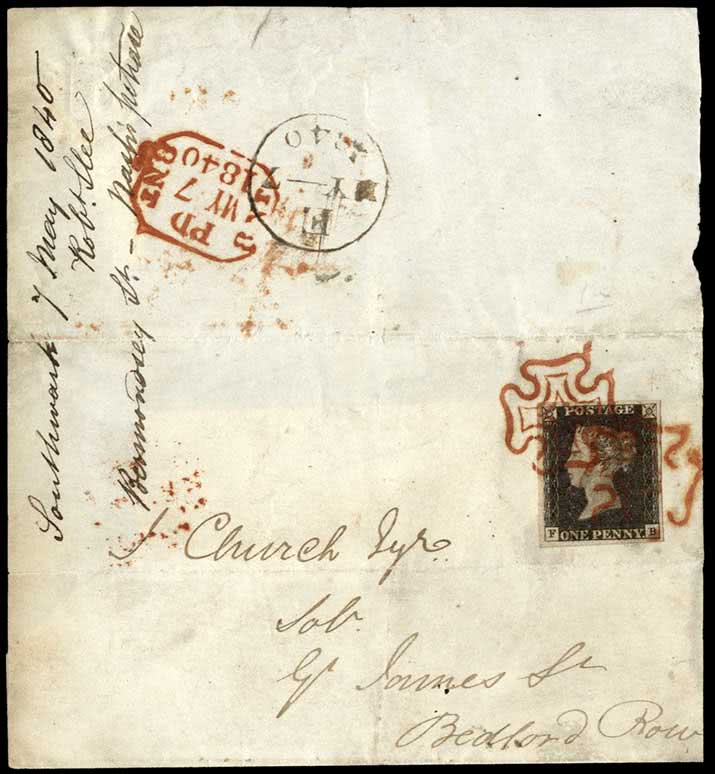 Southwark 7 May 1840
Robt Slee
Bermondsey St
PD
MY 7
1840
E
MY 7
1840
POSTAGE
F ONE PENNY B
J Church Esqr
Solr
Gt James St
Bedford Row